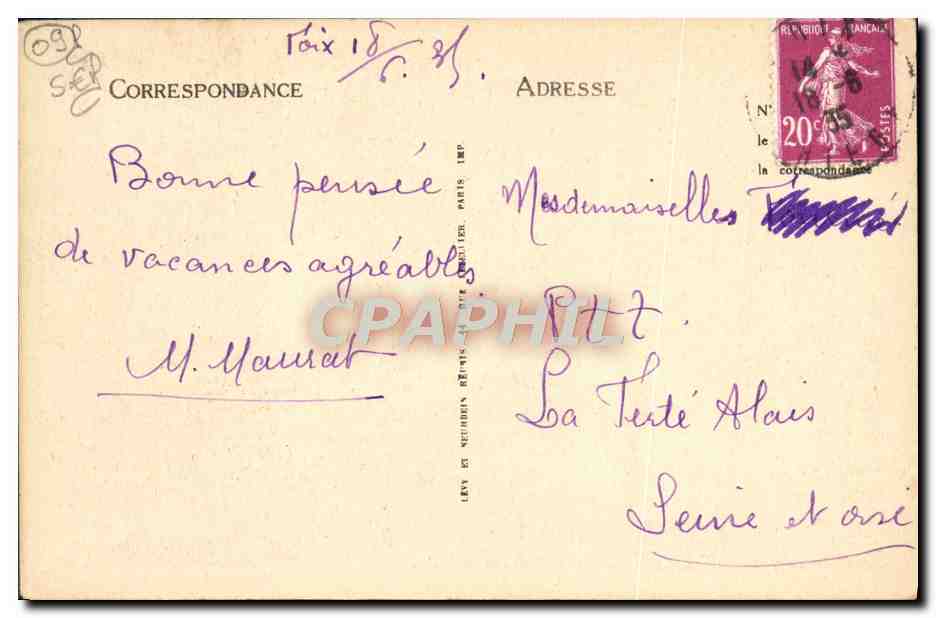 09
Foix 18/6.35.
CORRESPONDANCE
Bonne pensée
de vacances agréables
M. Maurat
LÉVY ET NEURDEIN RÉUNIS, 44 RUE LETELLIER, PARIS IMP.
ADRESSE
RÉPUBLIQUE FRANÇAISE
20c
POSTES
14
18-6
35
N'
le
la correspondance
Mesdemoiselles
PTT.
La Ferté Alais
Seine et Oise
CPAPHIL